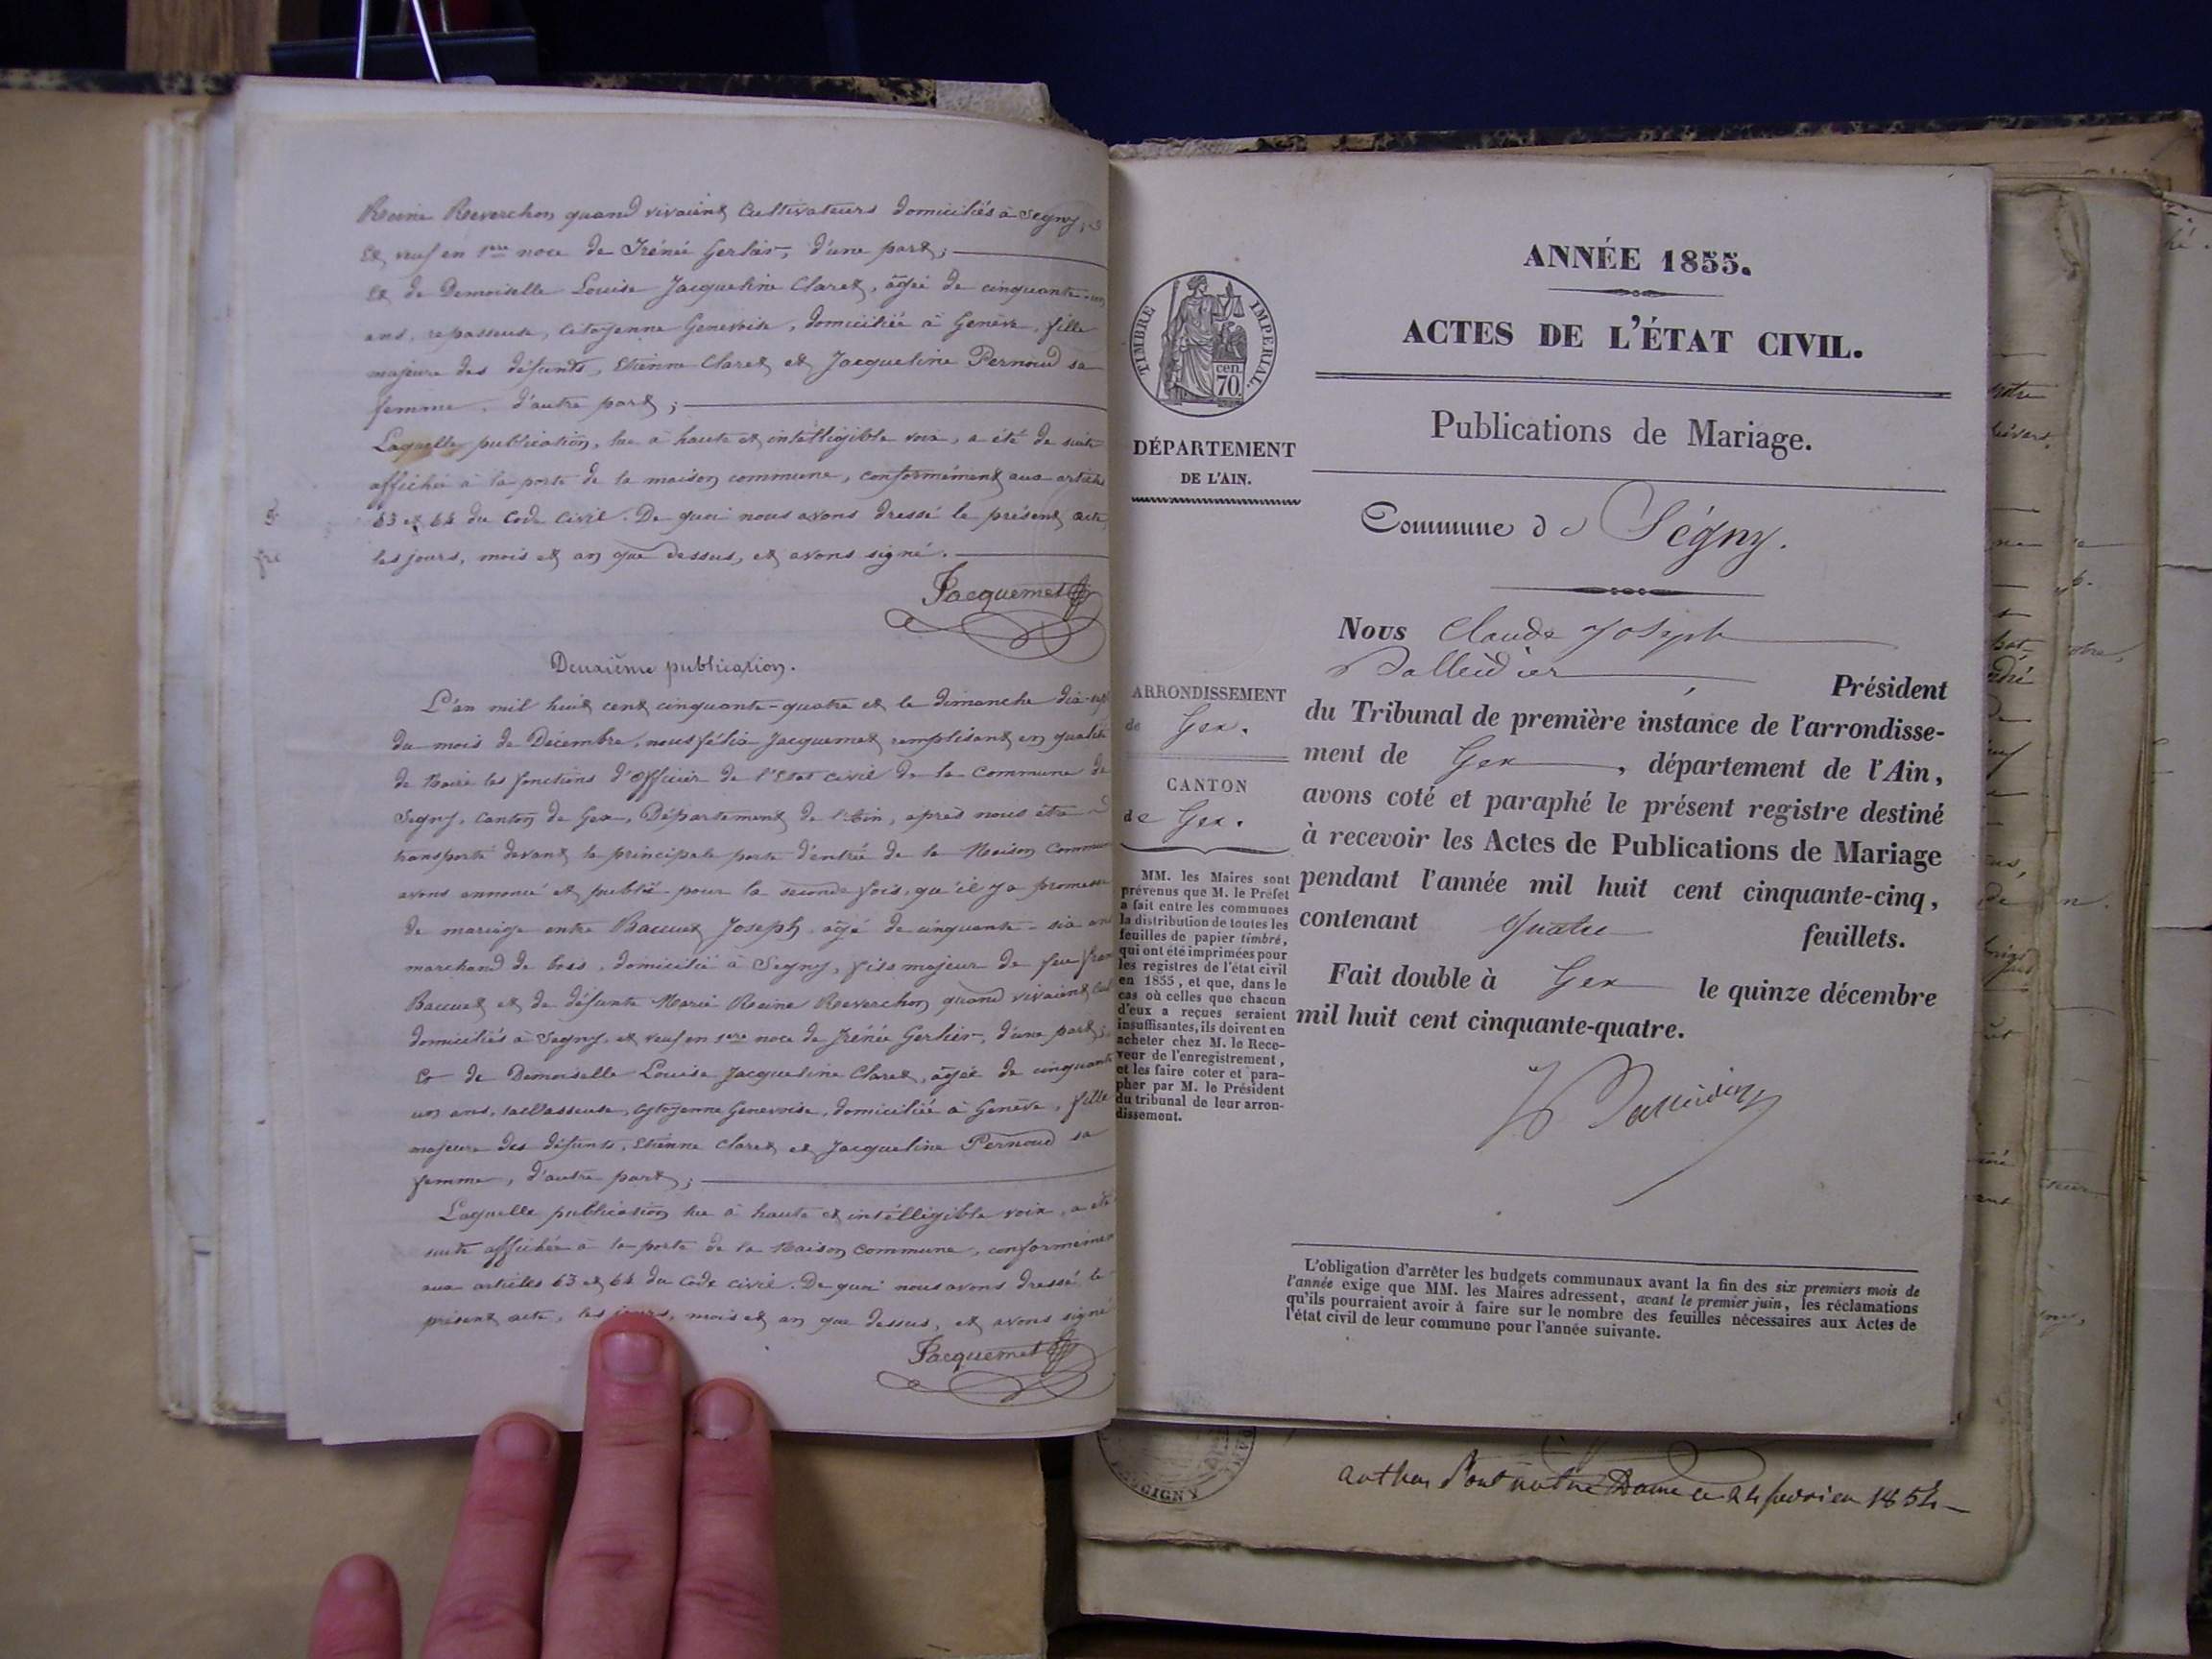 Reine Reverchon quand vivaient Cultivateurs domiciliés à Segny,
Et veuf en 1ere noce de Irénée Gerlier, d'une part;
Et de Demoiselle Louise Jacqueline Claret, âgée de cinquante-un
ans, repasseuse, Citoyenne Genevoise, domiciliée à Genève, fille
majeure des défunts, Etienne Claret et Jacqueline Pernoud sa
femme, d'autre part;
Laquelle publication, lue à haute et intélligible voix, a été de suite
affichée à la porte de la maison commune, conformément aux articles
63 et 64 du Code Civil. De quoi nous avons dressé le présent acte,
les jours, mois et an que dessus, et avons signé.
Jacquemet
Deuxième publication.
L'an mil huit cent cinquante-quatre et le dimanche dix-sept
du mois de Décembre, nous félix Jacquemet remplisant en qualité
de Maire les fonctions d'Officier de l'Etat civil de la Commune de
Segny, Canton de Gex, Département de l'Ain, après nous être
transporté devant la principale porte d'entrée de la Maison Commune
avons annoncé et publié pour la seconde fois, qu'il y a promesse
de mariage entre Baccuet Joseph, âgé de cinquante-six ans
marchand de bois, domicilié à Segny, fils majeur de feu
Baccuet et de défunte Marie Reine Reverchon quand vivaient
domiciliés à Segny, et veuf en 1ere noce de Irénée Gerlier, d'une part;
Et de Demoiselle Louise Jacqueline Claret, âgée de cinquante
un ans, Citoyenne Genevoise, domiciliée à Genève, fille
majeure des défunts, Etienne Claret et Jacqueline Pernoud sa
femme, d'autre part;
Laquelle publication lue à haute et intélligible voix, a été
suite affichée à la porte de la Maison Commune, conformément
aux articles 63 et 64 du Code civil. De quoi nous avons dressé le
présent acte, les jours, mois et an que dessus, et avons signé
Jacquemet
ANNÉE 1855.
ACTES DE L'ÉTAT CIVIL.
TIMBRE IMPERIAL.
cen. 70.
Publications de Mariage.
DÉPARTEMENT
DE L'AIN.
Commune de Ségny.
Nous Claude Joseph
Président
ARRONDISSEMENT
de Gex.
CANTON
de Gex.
du Tribunal de première instance de l'arrondisse-
ment de Gex, département de l'Ain,
avons coté et paraphé le présent registre destiné
à recevoir les Actes de Publications de Mariage
pendant l'année mil huit cent cinquante-cinq,
contenant quatre feuillets.
Fait double à Gex le quinze décembre
mil huit cent cinquante-quatre.
MM. les Maires sont
prévenus que M. le Préfet
a fait entre les communes
la distribution de toutes les
feuilles de papier timbré,
qui ont été imprimées pour
les registres de l'état civil
en 1855, et que, dans le
cas où celles que chacun
d'eux a reçues seraient
insuffisantes, ils doivent en
acheter chez M. le Rece-
veur de l'enregistrement,
et les faire coter et para-
pher par M. le Président
du tribunal de leur arron-
dissement.
L'obligation d'arrêter les budgets communaux avant la fin des six premiers mois de
l'année exige que MM. les Maires adressent, avant le premier juin, les réclamations
qu'ils pourraient avoir à faire sur le nombre des feuilles nécessaires aux Actes de
l'état civil de leur commune pour l'année suivante.
1854